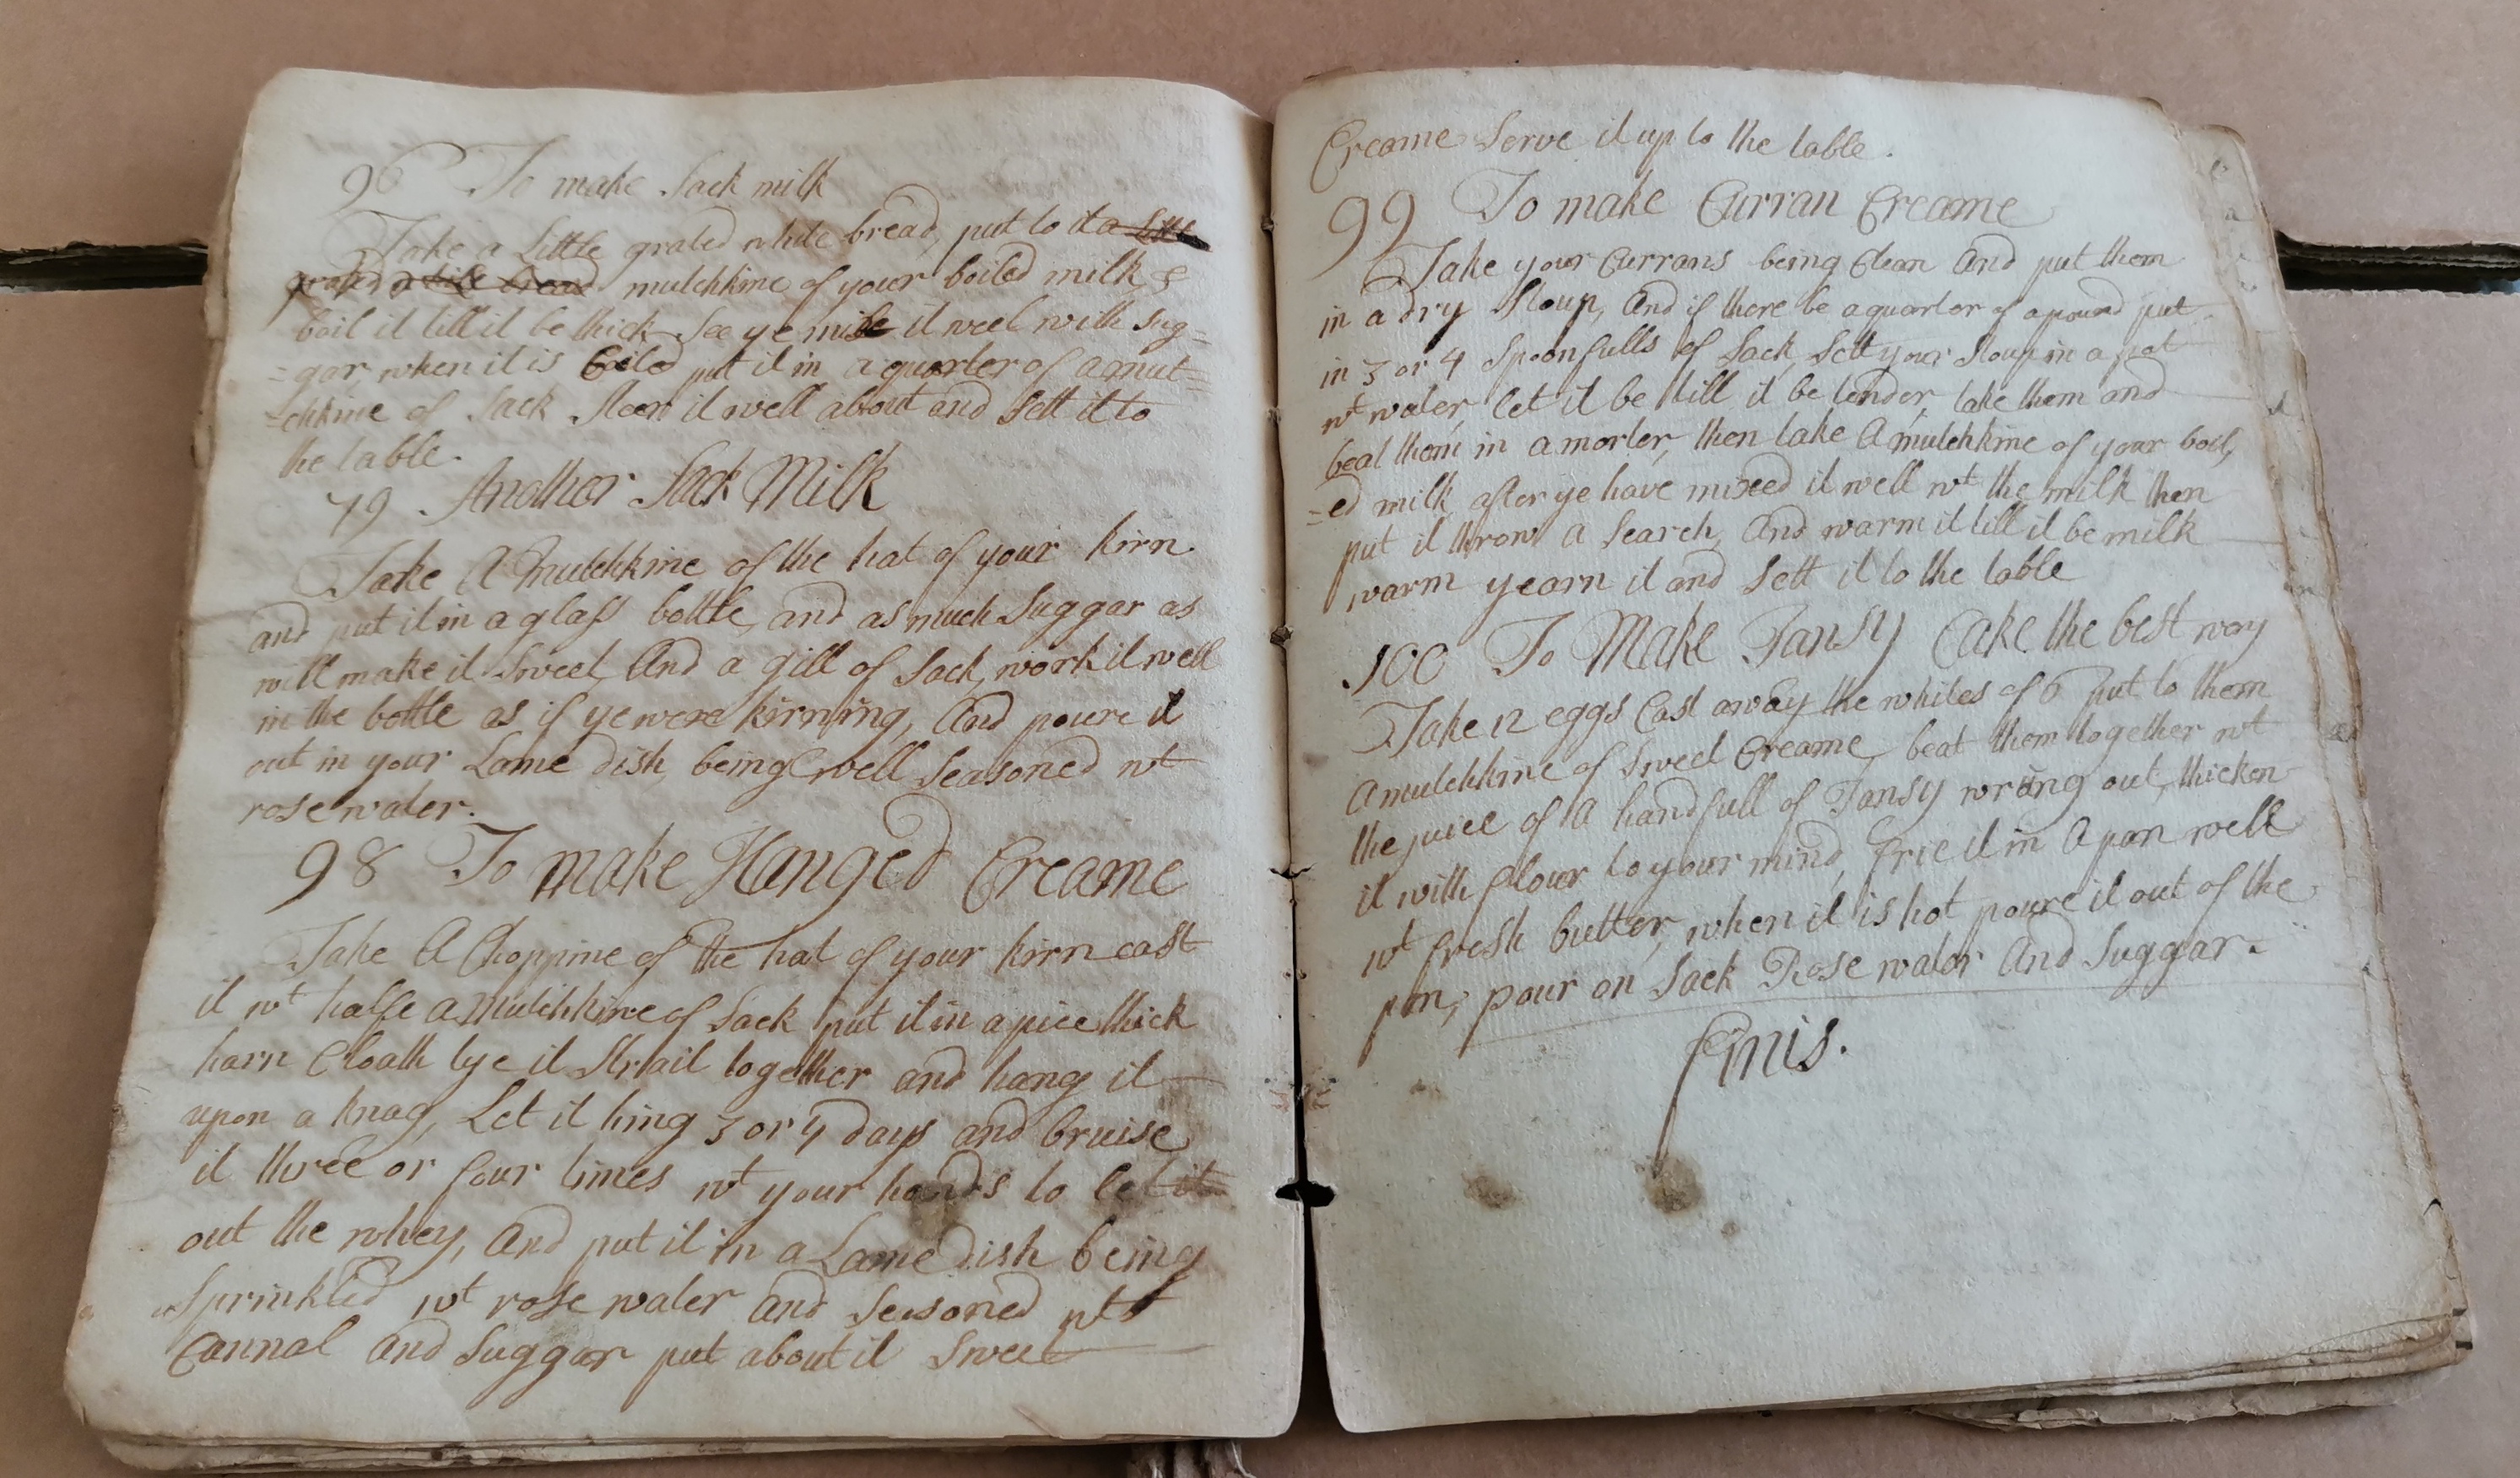 96 To make Sack milk
Take a Little grated white bread, put to it a Little
grated white bread mutchkine of your boiled milk &
boil it till it be thick See ye mixe it weel with sug=
=gar, when it is boiled put it in a quarter of a mut=
=chkine of Sack Steer it well about and Sett it to
the table.
79 Another Sack Milk
Take A Mutchkine of the hat of your kirn
and put it in a glass bottle, and as much Suggar as
will make it Sweet, And a gill of Sack, work it well
in the bottle as if ye were kirnning, And poure it
out in your Lame dish, being well Seasoned wt
rose water.
98 To make Hanged Creame
Take A Choppine of the hat of your kirn cast
it wt halfe a Mutchkine of Sack put it in a pice thick
harn Cloath tye it Strait together and hang it
upon a knag, Let it hing 3 or 4 days and bruise
it three or four times wt your hands to let it
out the whey, And put it in a Lame dish being
Sprinkled wt rose water And Seasoned wt
Cannal and Suggar put about it Sweet
Creame Serve it up to the table.
99 To make Curran Creame
Take your Currans being Clean And put them
in a dry Stoup, And if there be a quarter of a pound put
in 3 or 4 Spoonfulls of Sack, Sett your Stoup in a pot
wt water, let it be till it be tender, take them and
beat them in a morter, then take A mutchkine of your boil,
=ed milk after ye have mixeed it well wt the milk then
put it throw a Search, And warm it till it be milk
warm yearn it and Sett it to the table
100 To Make Tansy Cake the best way
Take 12 eggs Cast away the whites of 6 put to them
A mutchkine of Sweet Creame beat them together wt
the juice of A handfull of Tansy wrung out, thicken
it with flour to your mind, frie it in A pan well
wt fresh butter, when it is hot poure it out of the
pan, pour on Sack Rose water And Suggar.
Finis.